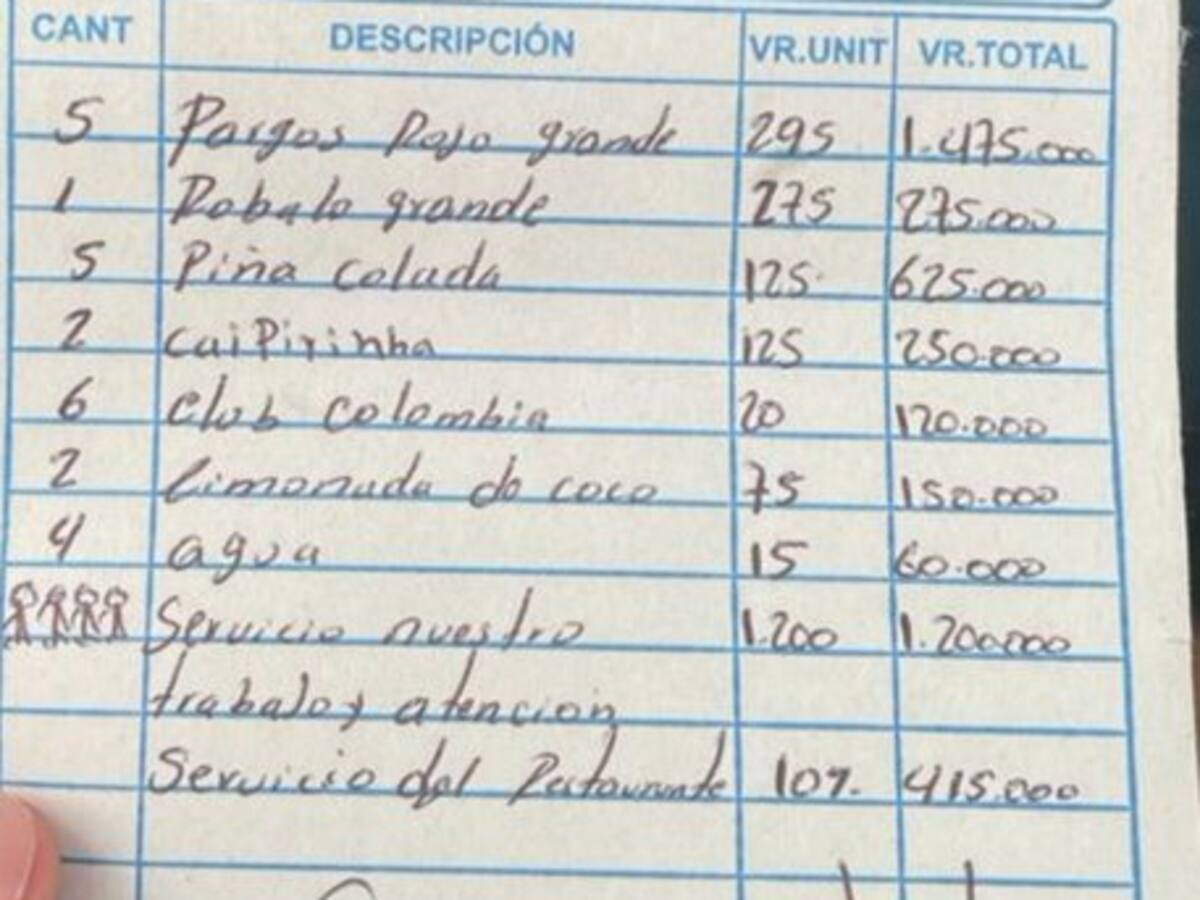 CANT DESCRIPCIÓN VR.UNIT VR.TOTAL
5 Pargos Rojo grande 295 1.475.000
1 Robalo grande 275 275.000
5 Piña colada 125 625.000
2 caiPirinha 125 250.000
6 Club Colombia 20 120.000
2 limonada de coco 75 150.000
4 agua 15 60.000
Servicio nuestro 1.200 1.200.000
trabajo y atencion
Servicio del Restaurante 10% 415.000